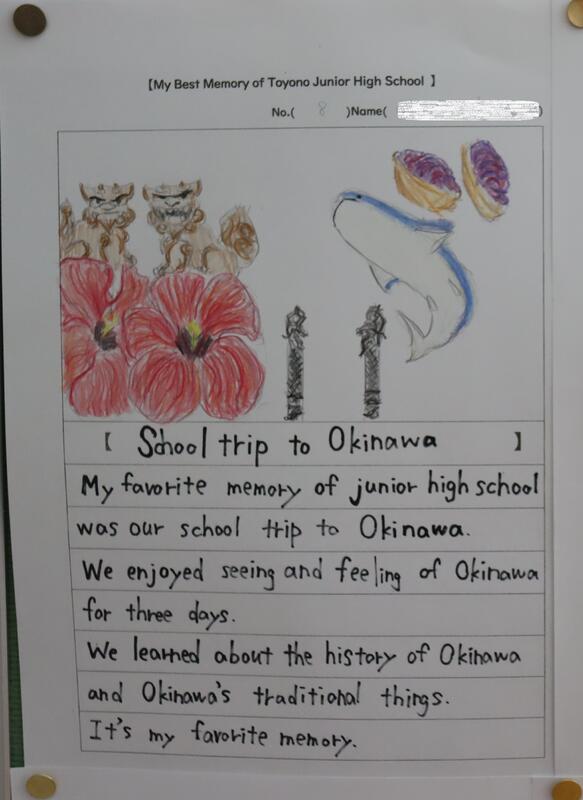 【My Best Memory of Toyono Junior High School 】
No.( 8 )Name( )
【 School trip to Okinawa 】
My favorite memory of junior high school
was our school trip to Okinawa.
We enjoyed seeing and feeling of Okinawa
for three days.
We learned about the history of Okinawa
and Okinawa's traditional things.
It's my favorite memory.